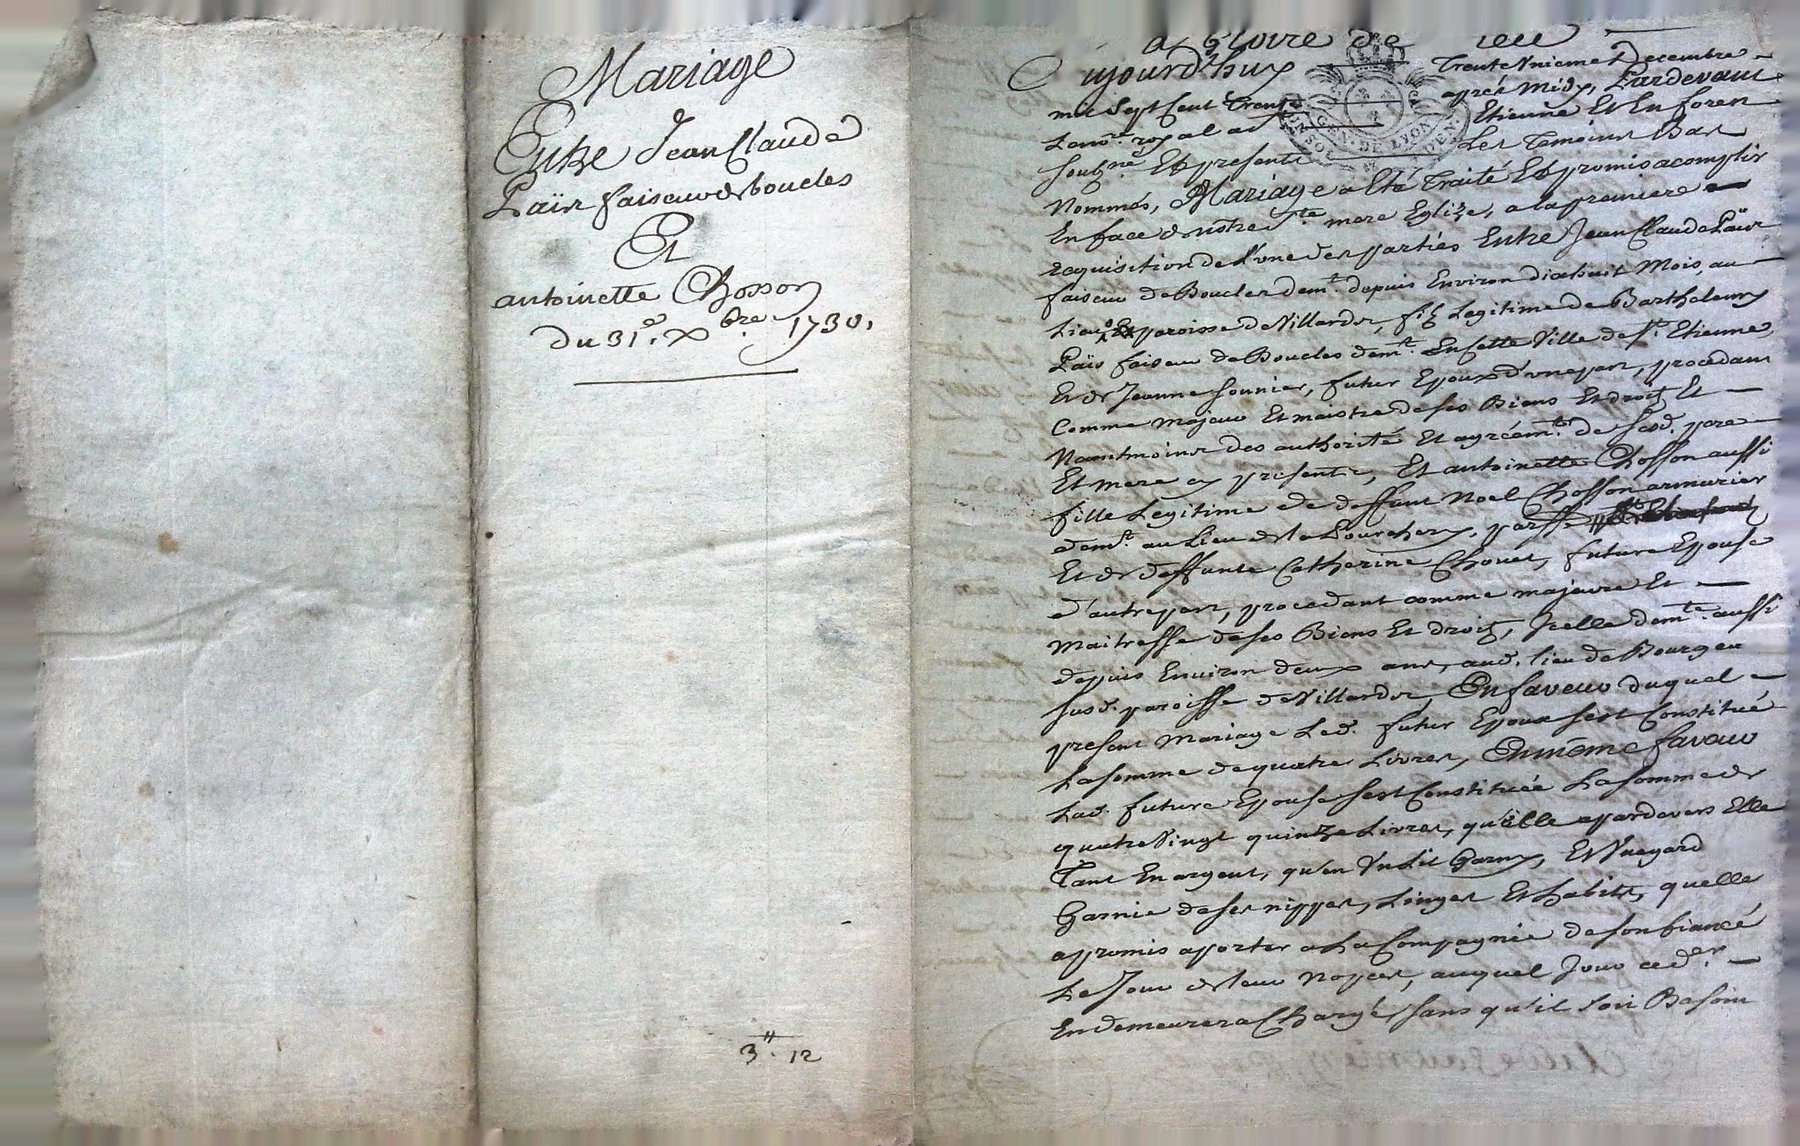 Mariage
Entre Jean Claude
Païs faiseur de boucles
Et
antoinette Chosson
du 31.e Xbre 1730.
3.lt 12
a Gloire de Dieu
Aujourd'huy Trente Unieme Decembre
mil Sept Cent Trente après midy, Pardevant
Le no.re royal a St Etienne Et En forest
soubz.né Et presents Les Temoins Bas
Nommés, Mariage a Eté Traité Et promis acomplir
En face de notre S.te mere Eglize, a la premiere
requisition de l'une des parties Entre Jean Claude Païs
faiseur de Boucles dem.t depuis Environ dixhuit Mois, au
Lieu, Et paroisse de Villards, fils Legitime de Barthelemy
Païs faiseur de Boucles dem.t En cette Ville de St. Etienne,
Et de Jeanne Sounier, futur Epoux d'une part, procedant
Comme majeur Et maistre de ses Biens Et droits Et
Neantmoins des authorité Et agréem.t de sesd. pere
Et mere cy presents, Et antoinette Chosson aussi
fille Legitime de deffunt Noel Chosson armurier
dem.t au Lieu de la
Et de deffunte Catherine Chovet, future Epouse
d'autre part, procedant comme majeure Et
Maitresse de ses Biens Et droits, Icelle dem.te aussi
depuis Environ deux ans, aud. lieu de
susd. paroisse de Villards, En faveur duquel
present Mariage Led. futur Epoux s'est Constitué
La somme de quatre Livres, En même faveur
Lad. future Epouse s'est Constituée La somme de
quatre Vingt quinze Livres, qu'elle a pardevers Elle
Tant En argent, qu'en Un Lit Garny, Et
Garnie de ses nippes, Linges Et habits, quelle
a promis aporter a La Compagnie de son fiancé
Le Jour de leur Nopces, auquel Jour ced.er
En demeurera Chargé, sans qu'il soit Besoin